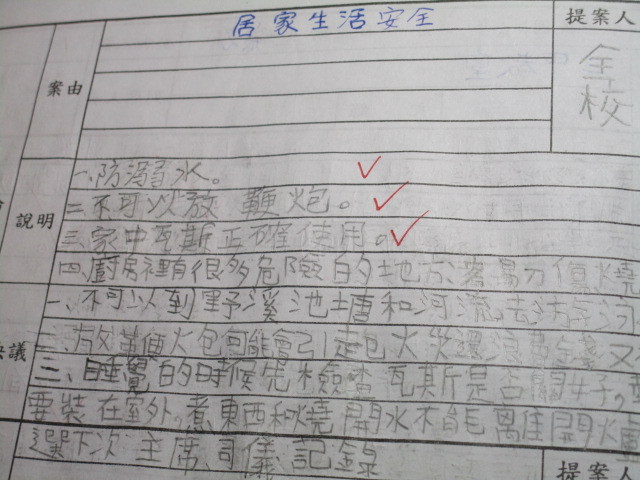 居家生活安全
提案人
案由
全校
說明
一、防溺水。
二、不可以放鞭炮。
三、家中瓦斯正確使用。
四、廚房裡有很多危險的地方，容易
一、不可以到野溪池塘和河流去
二、放鞭炮可能會引起火災還浪費金錢又
三、睡覺的時候先檢查瓦斯是否關好了。
要裝在室外，煮東西和燒開水不能離開火
選下次主席、司儀、記錄
議
提案人